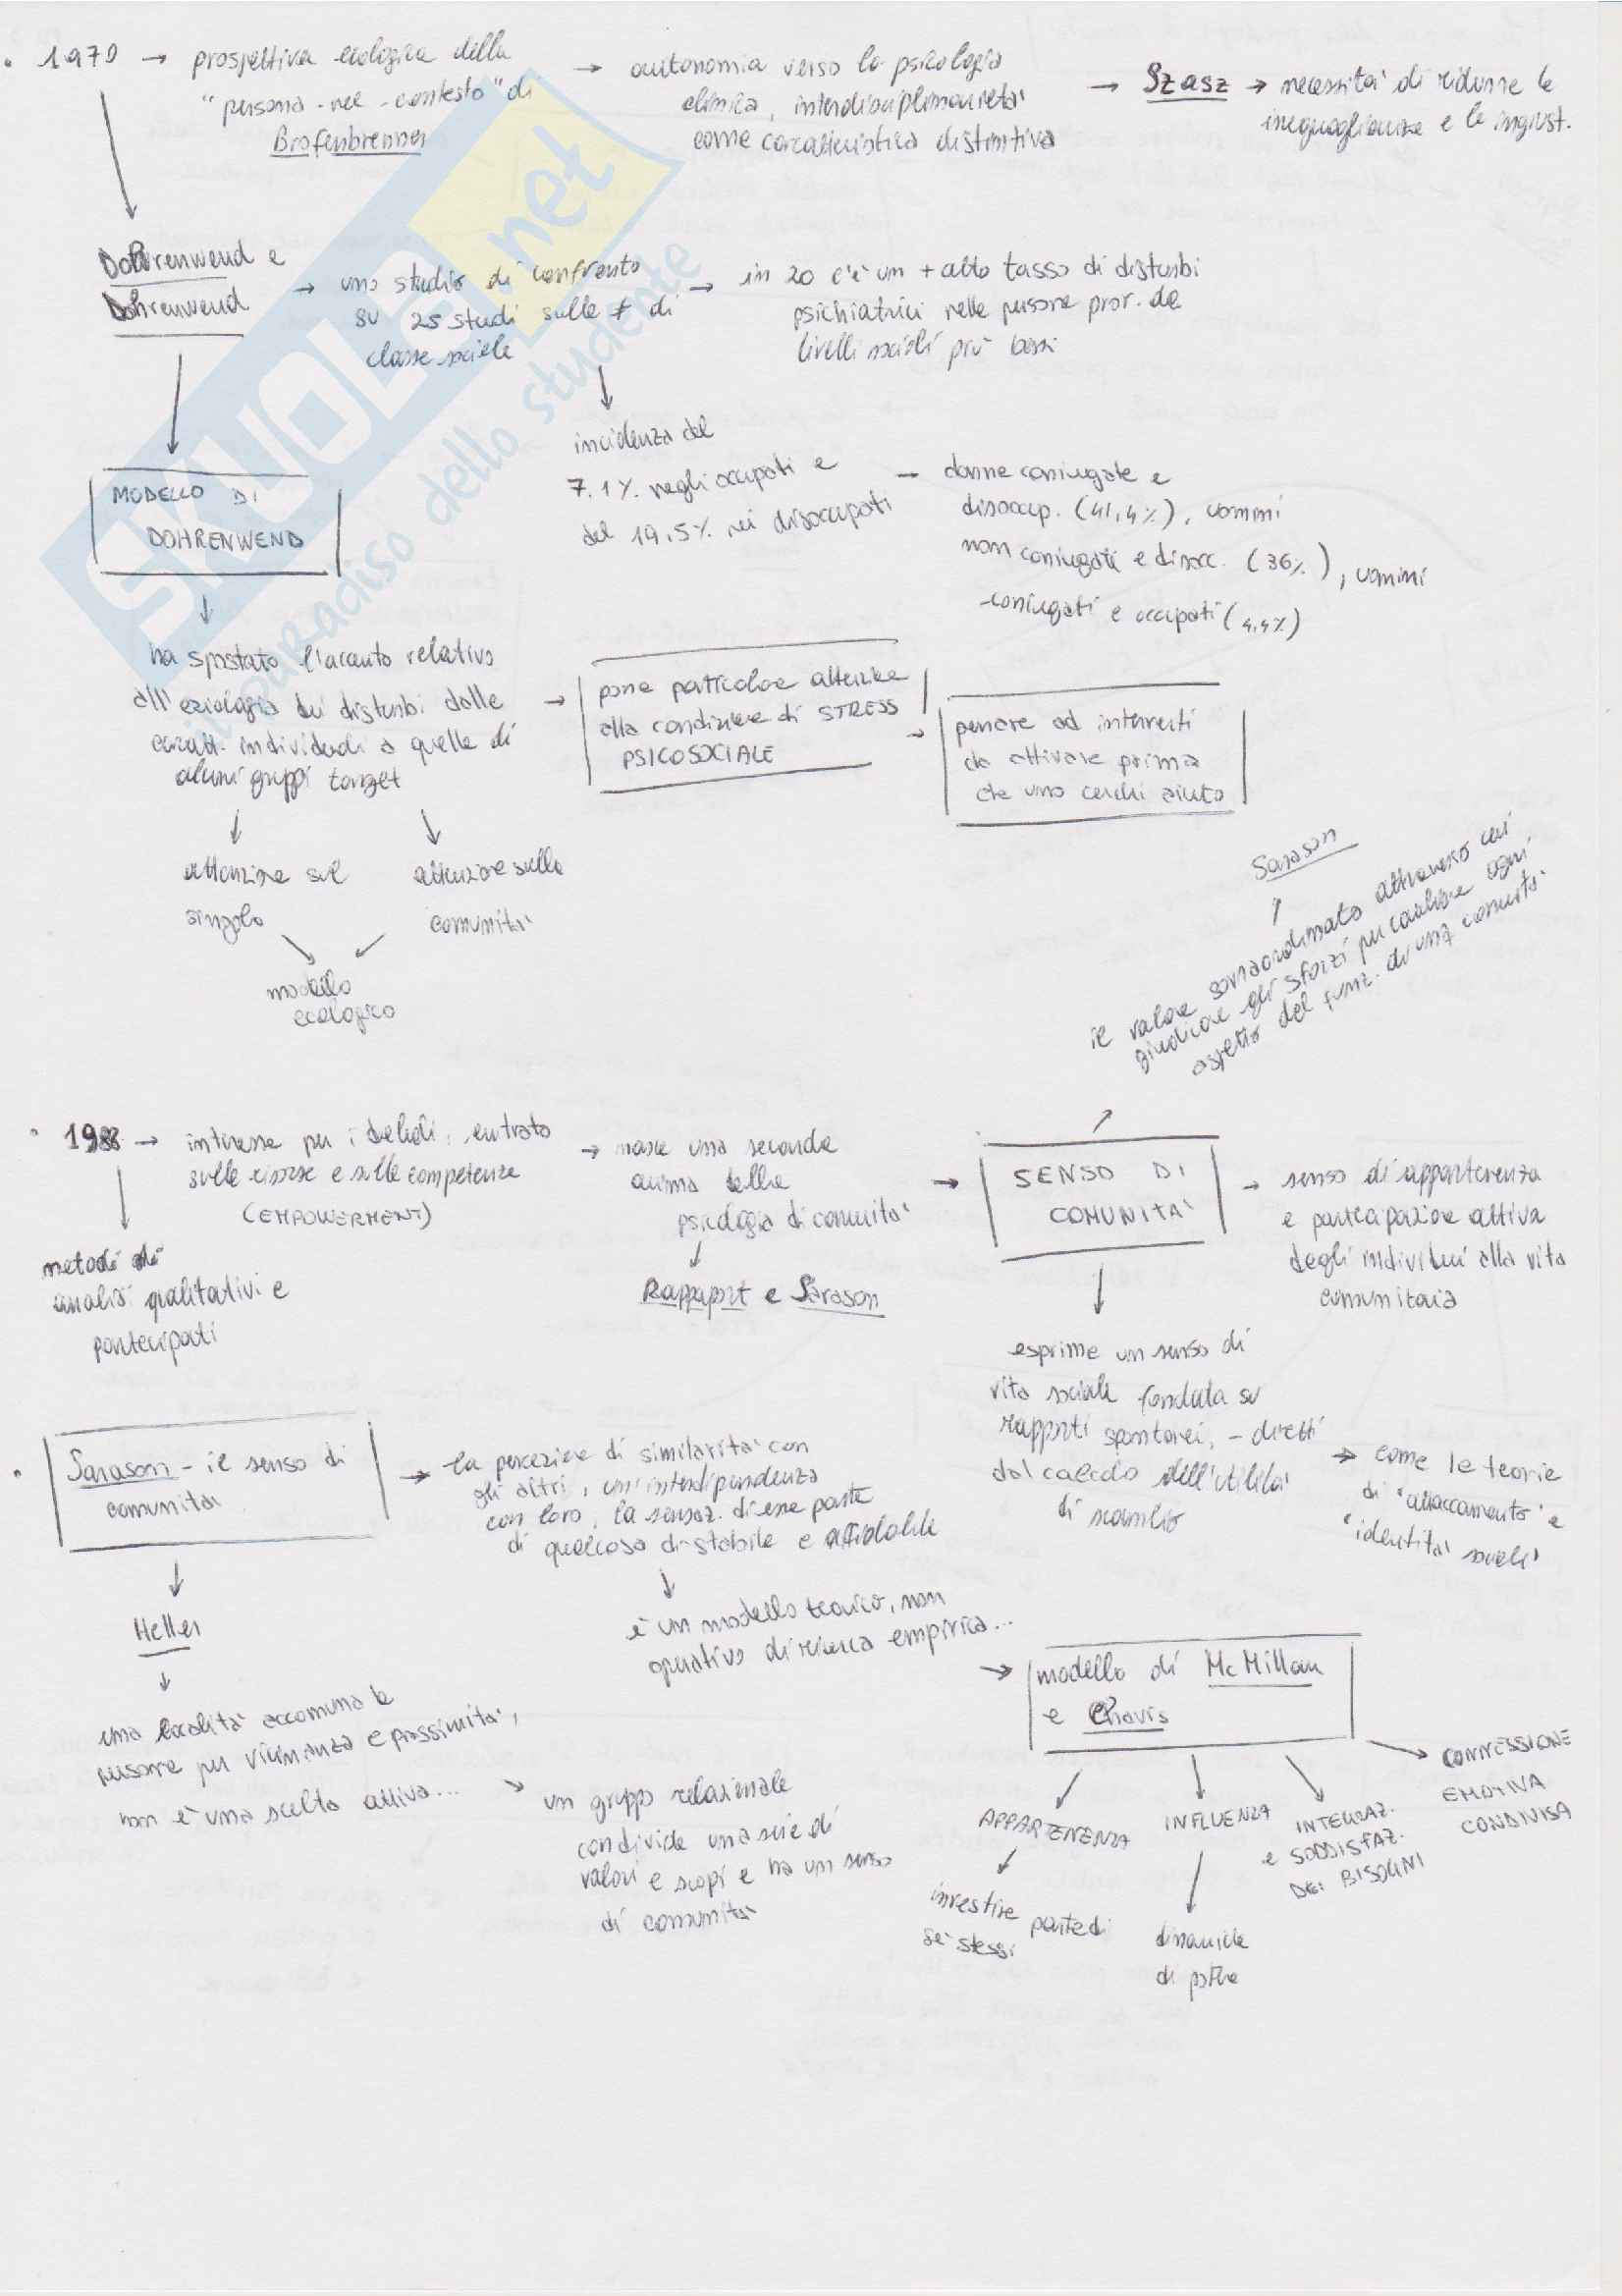 • 1970 → prospettiva ecologica della
"persona-nel-contesto" di
Brofenbrenner
→ autonomia verso la psicologia
clinica, interdisciplinarietà
come caratteristica distintiva
→ Szasz → necessità di ridurre le
ineguaglianze e le ingiust.
Dohrenwend e
Dohrenwend
→ uno studio di confronto
su 25 studi sulle ≠ di
classe sociale
→ in 20 c'è un + alto tasso di disturbi
psichiatrici nelle persone prov. da
livelli sociali più bassi
incidenza del
7.1% negli occupati e
del 19,5% nei disoccupati
→ donne coniugate e
disoccup. (41,4%), uomini
non coniugati e disocc. (36%), uomini
coniugati e occupati (4,4%)
MODELLO DI
DOHRENWEND
ha spostato l'accento relativo
all'eziologia dei disturbi dalle
caratt. individuali a quelle di
alcuni gruppi target
→ pone particolare attenzione
alla condizione di STRESS
PSICOSOCIALE
→ pensare ad interventi
da attivare prima
che uno cerchi aiuto
attenzione sul
singolo
attenzione sulla
comunità
modello
ecologico
Sarason
il valore sovraordinato attraverso cui
giudicare gli sforzi per cambiare ogni
aspetto del funz. di una comunità
• 1988 → interesse per i deboli, centrato
sulle risorse e sulle competenze
(EMPOWERMENT)
→ nasce una seconda
anima della
psicologia di comunità
Rappaport e Sarason
→ SENSO DI
COMUNITA'
→ senso di appartenenza
e partecipazione attiva
degli individui alla vita
comunitaria
metodi di
analisi qualitativi e
partecipati
esprime un senso di
vita sociale fondata su
rapporti spontanei, - diretti
dal calcolo dell'utilità
di scambio
→ come le teorie
di "attaccamento" e
"identità sociale"
• Sarason - il senso di
comunità
→ la percezione di similarità con
gli altri, un'interdipendenza
con loro, la sensaz. di essere parte
di qualcosa di stabile e affidabile
Heller
è un modello teorico, non
operativo di ricerca empirica...
una località accomuna le
persone per vicinanza e prossimità,
non è una scelta attiva...
→ un gruppo relazionale
condivide una serie di
valori e scopi e ha un senso
di comunità
→ modello di McMillan
e Chavis
APPARTENENZA
INFLUENZA
INTEGRAZ.
e SODDISFAZ.
DEI BISOGNI
CONNESSIONE
EMOTIVA
CONDIVISA
investire parte di
sè stessi
dinamiche
di potere
SKUOLA.net
il paradiso dello studente